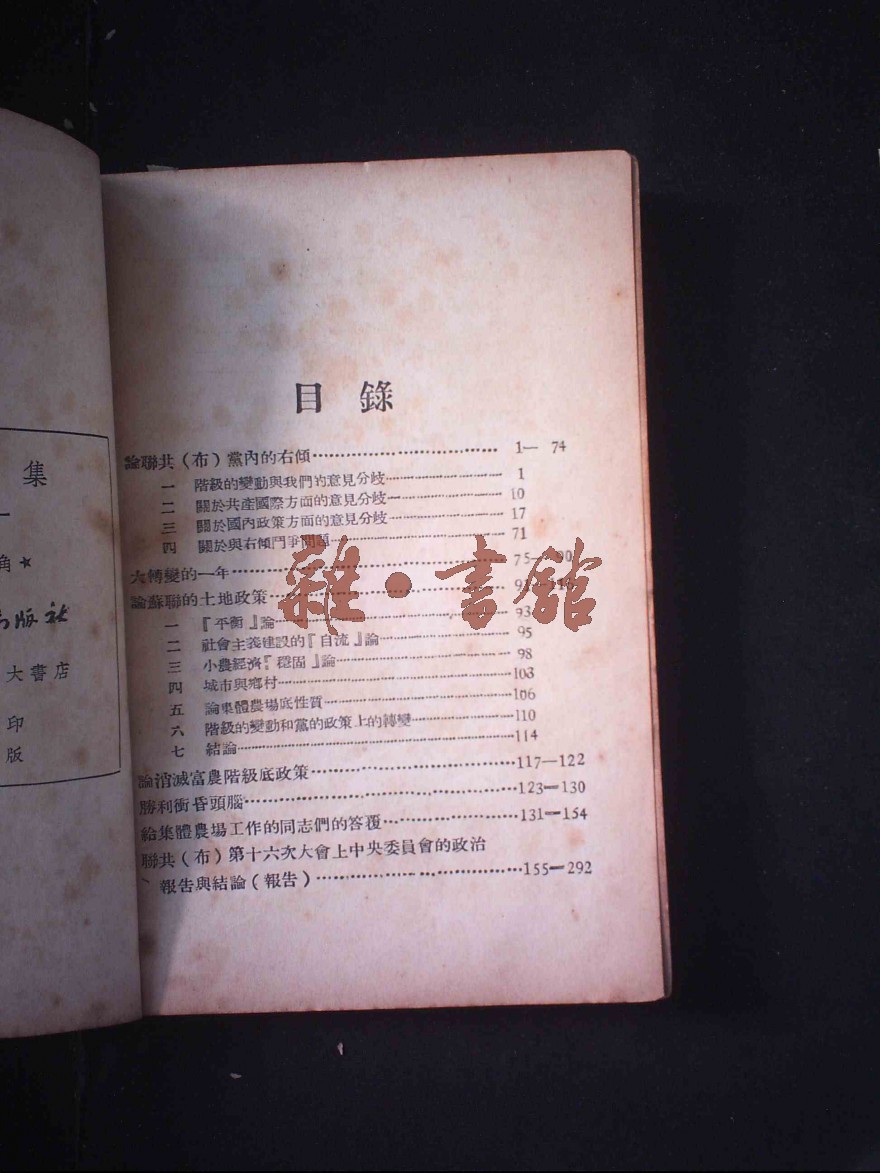 集
角★
版社
大書店
印
版
目錄
論聯共(布)黨內的右傾 1—74
一 階級的變動與我們的意見分歧 1
二 關於共產國際方面的意見分歧 10
三 關於國內政策方面的意見分歧 17
四 關於與右傾鬥爭問題 71
大轉變的一年 75—90
論蘇聯的土地政策 91—116
一 『平衡』論 93
二 社會主義建設的『自流』論 95
三 小農經濟『穩固』論 98
四 城市與鄉村 103
五 論集體農場底性質 106
六 階級的變動和黨的政策上的轉變 110
七 結論 114
論消滅富農階級底政策 117—122
勝利衝昏頭腦 123—130
給集體農場工作的同志們的答覆 131—154
聯共(布)第十六次大會上中央委員會的政治
報告與結論(報告) 155—292
雜·書館